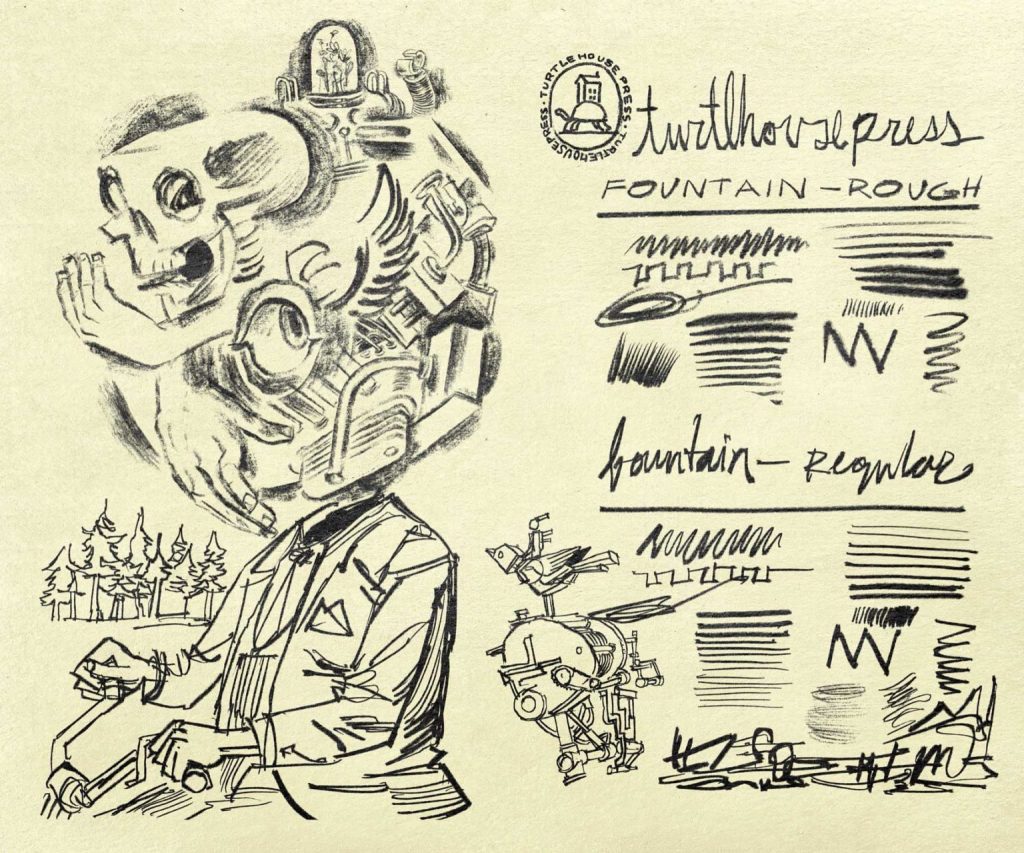 TURTLEHOUSE PRESS · TURTLEHOUSEPRESS ·
turtlhousepress
FOUNTAIN - ROUGH
fountain - Regular